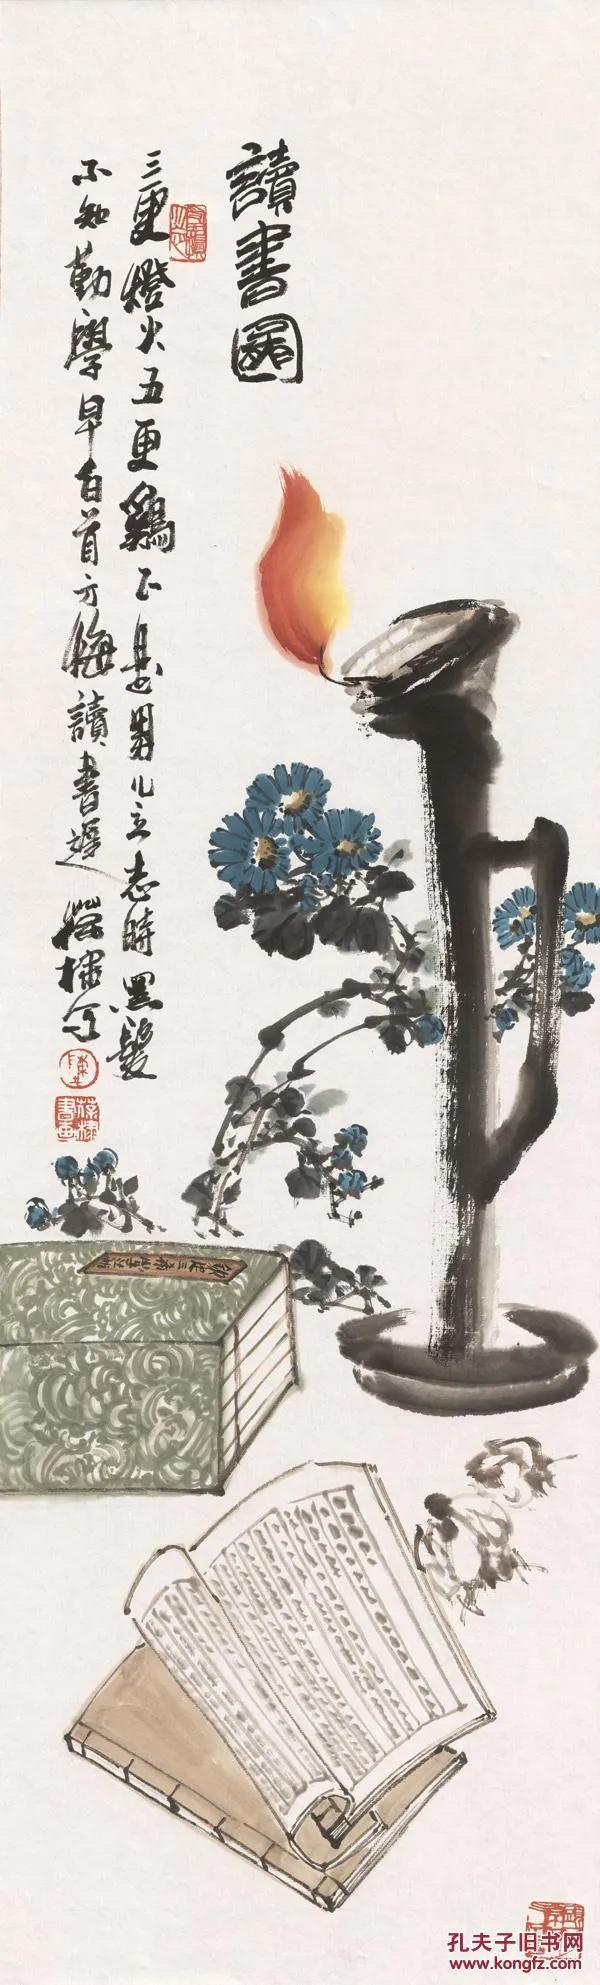 讀書圖
三更燈火五更鷄正是男儿立志時黑髮
不知勤學早白首方悔讀書遲
孔夫子旧书网
www.kongfz.com